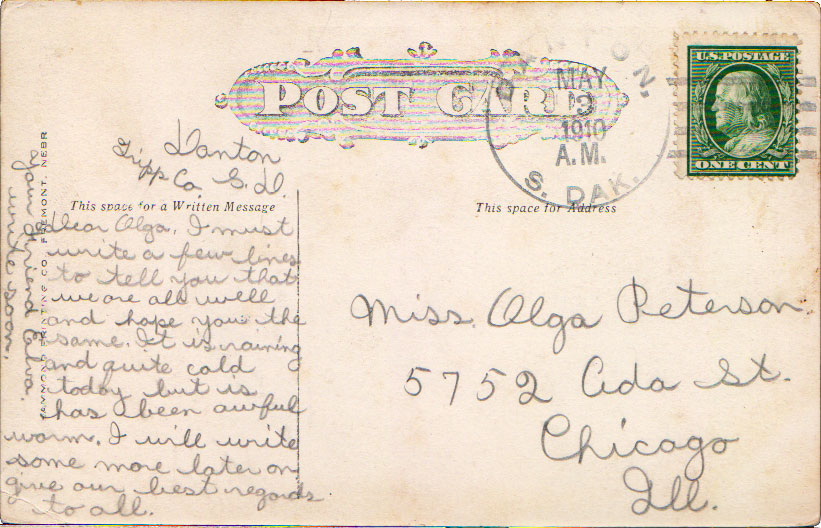 POST CARD
U.S. POSTAGE
ONE CENT
MAY
3
1910
A.M.
S. DAK.
Tripp Co. S.D.
This space for a Written Message
This space for Address
Dear Olga, I must
write a few lines
to tell you that
we are all well
and hope you the
same. It is raining
and quite cold
today but is
has been awful
warm. I will write
some more later on
give our best regards
to all.
your friend
write soon.
Miss. Olga Peterson
5752 Ada St.
Chicago
Ill.
RAYMOND PRINTING CO. FREMONT, NEBR